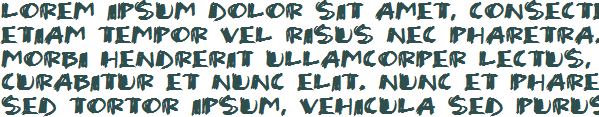 LOREM IPSUM DOLOR SIT AMET, CONSECTE
ETIAM TEMPOR VEL RISUS NEC PHARETRA.
MORBI HENDRERIT ULLAMCORPER LECTUS,
CURABITUR ET NUNC ELIT. NUNC ET PHARE
SED TORTOR IPSUM, VEHICULA SED PURUS